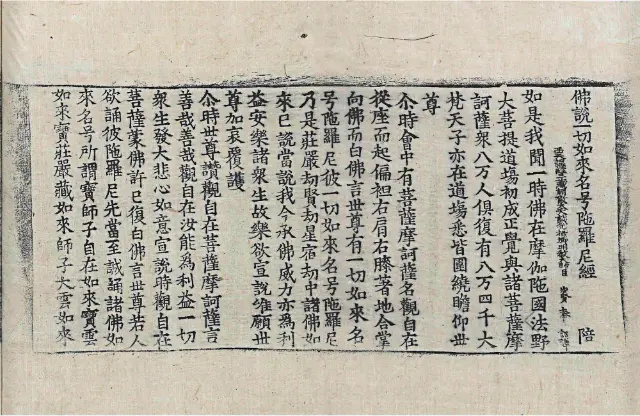 佛說一切如來名号陁羅尼經 陪
如是我聞一時佛在摩伽陁國法野
大菩提道場初成正覺與諸菩薩摩
訶薩衆八万人俱復有八万四千大
梵天子亦在道場悉皆圍繞瞻仰世
尊
尒時會中有菩薩摩訶薩名觀自在
從座而起偏袒右肩右膝著地合掌
向佛而白佛言世尊有一切如來名
号陁羅尼彼一切如來名号陁羅尼
乃是莊嚴劫賢劫星宿劫中諸佛如
來已說當說我今承佛威力亦爲利
益安樂諸衆生故樂欲宣說維願世
尊加哀覆護
尒時世尊讚觀自在菩薩摩訶薩言
善哉善哉觀自在汝能爲利益一切
衆生發大悲心如意宣說時觀自在
菩薩蒙佛許已復白佛言世尊若人
欲誦彼陁羅尼先當一至誠誦諸佛如
來名号所謂寶師子自在如來寶雲
如來寶莊嚴藏如來師子大雲如來